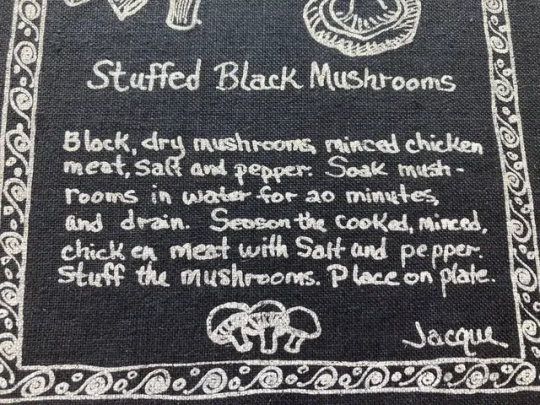 Stuffed Black Mushrooms
Black, dry mushrooms, minced chicken
meat, Salt and pepper. Soak mush-
rooms in water for 20 minutes,
and drain. Season the cooked, minced,
chicken meat with Salt and pepper.
Stuff the mushrooms. Place on plate.
Jacque